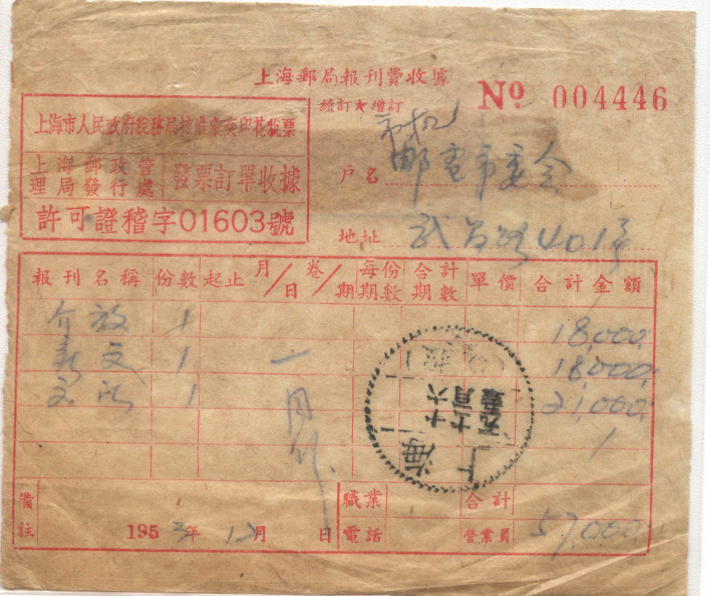 上海郵局報刊費收據
續訂★增訂
№ 004446
上海市人民政府稅務局核准彙貼印花稅票
上海郵政管理局發行處 發票訂單收據
許可證稽字01603號
戶名 邮電市委会
地址 武昌路401号
報刊名稱 份數 起止 月/日 卷/期 每份期數 合計期數 單價 合計金額
介放 1 18,000
新文 1 一 18,000
文 1 月 21,000
上海
備註 1953年12月 日 職業 電話 合計 營業員 57,000